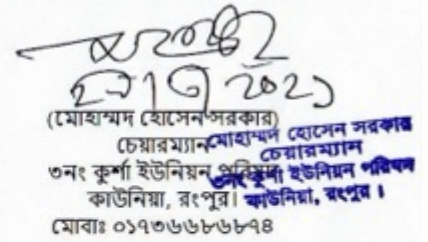 (মোহাম্মদ হোসেন সরকার)
চেয়ারম্যান
৩নং কুর্শা ইউনিয়ন পরিষদ
কাউনিয়া, রংপুর।
মোবাঃ ০১৭৩৬৬৮৬৮৭৪
মোহাম্মদ হোসেন সরকার
চেয়ারম্যান
৩নং কুর্শা ইউনিয়ন পরিষদ
কাউনিয়া, রংপুর।